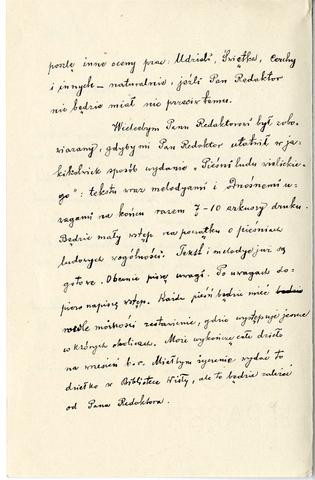 poszlę inne oceny prac: Udzieli, Świętka, Cerchy
i innych – naturalnie, jeśli Pan Redaktor
nie będzie miał nic przeciw temu.
Wielcebym Panu Redaktorowi był zobo-
wiązany, gdyby mi Pan Redaktor ułatwił w ja-
kikolwiek sposób wydanie "Pieśni ludu wielickie-
go": tekstu wraz melodyami i odnośnemi u-
wagami na końcu razem 7–10 arkuszy druku.
Będzie mały wstęp na początku o pieśniach
ludowych wogólności. Tekst i melodye już są
gotowe. Obecnie piszę uwagi. Po uwagach do-
piero napiszę wstęp. Każda pieśń będzie mieć
wedle możności zestawienie, gdzie występuje jeszcze
w których okolicach. Może wykończę całe dzieło
na wrzesień b.r. Miałbym życzenie wydać to
dziełko w Bibliotece Wisły, ale to będzie zależeć
od Pana Redaktora.